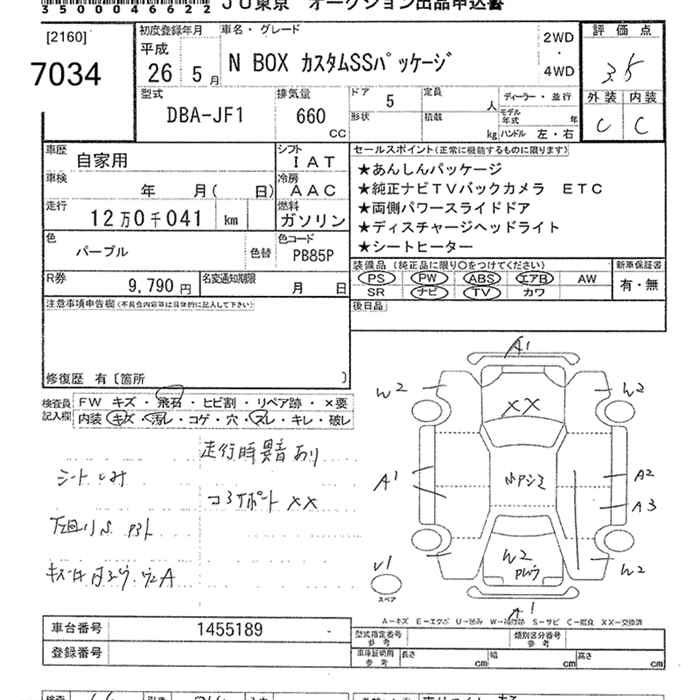 350004622
JU東京 オークション出品申込書
[2160]
7034
初度登録年月
平成
26 5月
車名・グレード
N BOX カスタムSSパッケージ
2WD
・
4WD
評価点
3.5
外装 内装
C C
型式
DBA-JF1
排気量
660
CC
ドア 5
形状
定員 人
積載 kg
ディーラー・並行
モデル年式 年
ハンドル 左・右
車歴 自家用
車検 年 月( 日)
走行 12万0千041 km
シフト
IAT
冷房
AAC
燃料
ガソリン
色 パープル 色替
色コード
PB85P
R券 9,790円
名変通知期限 月 日
セールスポイント(正常に機能するものに限ります)
★あんしんパッケージ
★純正ナビTVバックカメラ ETC
★両側パワースライドドア
★ディスチャージヘッドライト
★シートヒーター
装備品(純正品に限り○をつけてください)
PS PW ABS エアB AW
SR ナビ TV カワ
新車保証書
有・無
後日品
注意事項申告欄(不具合内容等は具体的に記入して下さい)
修復歴 有〔箇所 〕
検査員記入欄
FW キズ・飛石・ヒビ割・リペア跡・×要
内装・キズ・汚レ・コゲ・穴・スレ・キレ・破レ
走行時異音あり
シートしみ
コアサポート XX
A1
W2
W2
XX
A1
A2
A3
W2
W2
W2
U1
スペア
A1
A-キズ E-エクボ U-凹み W-補修跡 S-サビ C-腐食 XX-交換済
車台番号 1455189
登録番号
型式指定番号
参考
類別区分番号
参考
車庫証明用
参考
長さ cm 幅 cm 高さ cm